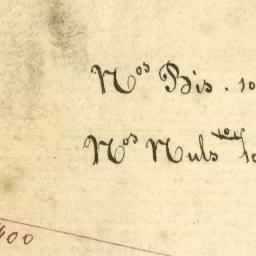 Nos Bis. 10
Nos Nuls 10
400